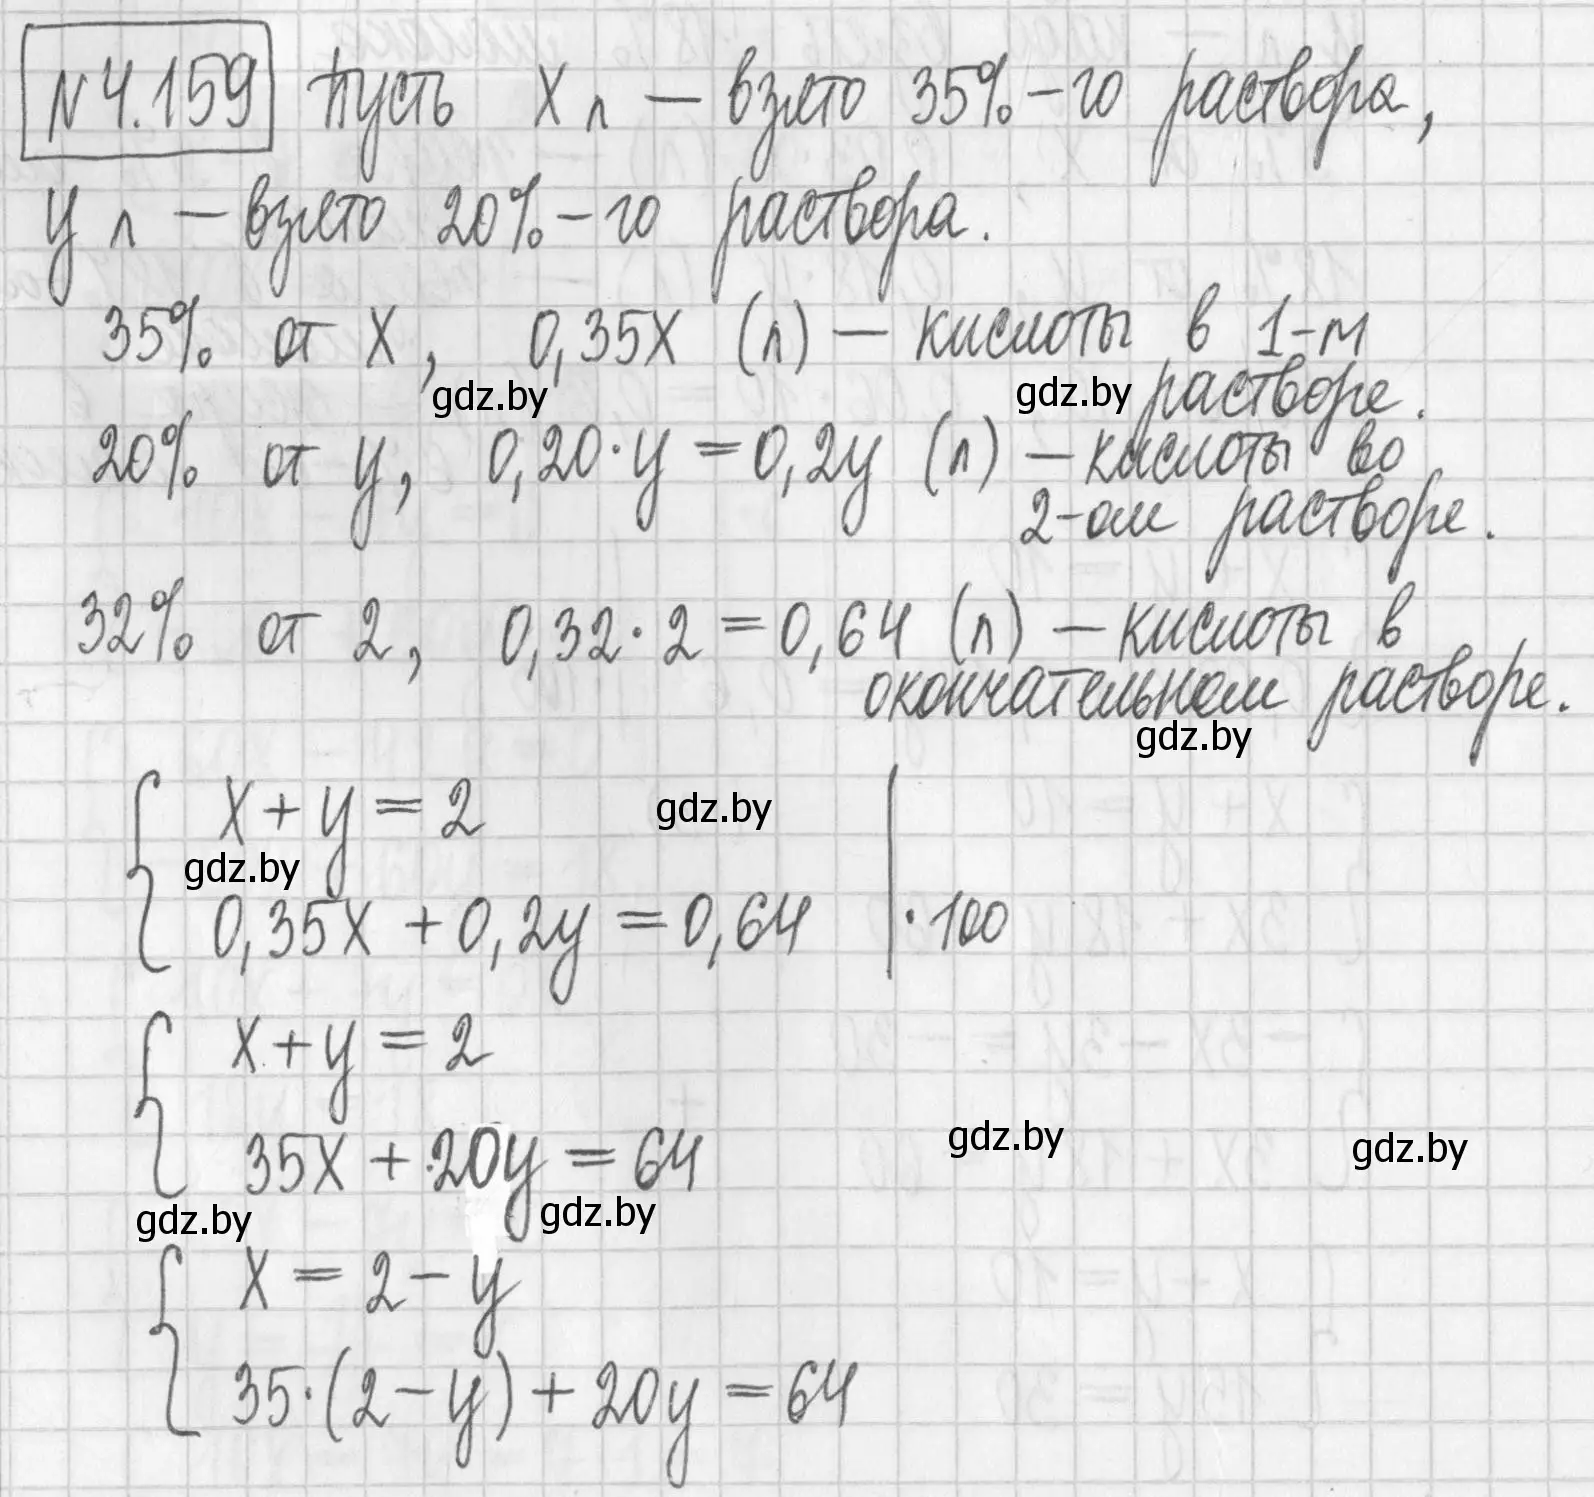 №4.159 Пусть x л — взято 35%-го раствора,
y л — взято 20%-го раствора.
35% от x, 0,35x (л) — кислоты в 1-м
растворе.
gdz.by gdz.by
20% от y, 0,20·y = 0,2y (л) — кислоты во
2-ом растворе.
32% от 2, 0,32·2 = 0,64 (л) — кислоты в
окончательном растворе.
gdz.by
{ x + y = 2
gdz.by
gdz.by
0,35x + 0,2y = 0,64 | ·100
{ x + y = 2
35x + 20y = 64
gdz.by gdz.by
gdz.by gdz.by
{ x = 2 - y
35·(2 - y) + 20y = 64